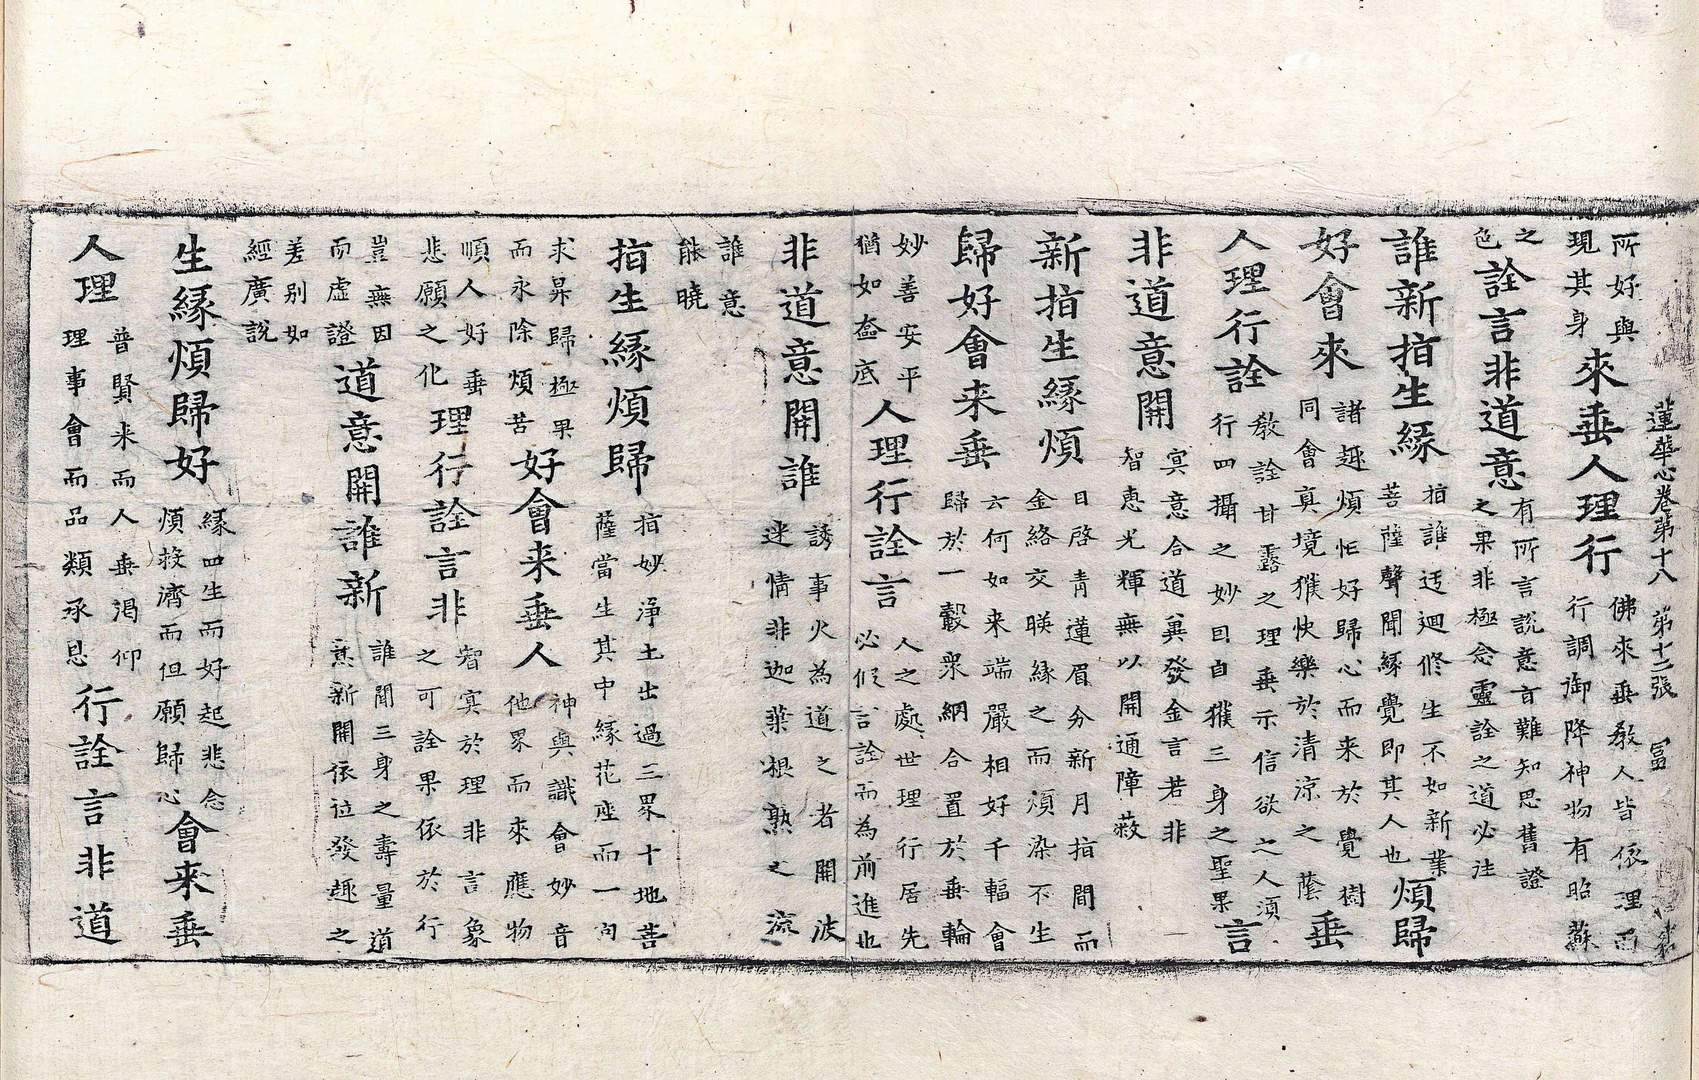 蓮華心卷第十八 第十二張 冨
所好與
現其身
來垂人理行
佛來垂教人皆依理而
行調御降神物有昭蘇
之
色
詮言非道意
有所言說意言難知思舊證
之果非極念靈詮之道必注
誰新指生縁
指誰迃迴修生不如新業
菩薩聲聞縁覺即其人也
煩歸
好會來
諸趣煩怕好歸心而来於覺樹
同會真境獲快樂於清涼之蔭
垂
人理行詮
教詮甘露之理垂示信欲之人湏
行四攝之妙因自獲三身之聖果
言
非道意開
㝠意合道發金言若非
智恵光輝無以開通障蔽
新指生縁煩
目啓青蓮眉分新月指間而
金絡交暎縁之而煩染不生
歸好會来垂
云何如来端嚴相好千輻會
歸於一轂衆綱合置於垂輪
妙善安平
猶如奩底
人理行詮言
人之處世理行居先
必假言詮而為前進也
非道意開誰
誘事火為道之者開波
迷情非迦葉根熟之流
誰意
能曉
指生縁煩歸
指妙淨土出過三界十地菩
薩當生其中縁花座而一向
求昇歸極果
而永除煩苦
好會来垂人
神與識會妙音
他界而來應物
順人好垂
悲願之化
理行詮言非
智㝠於理非言象
之可詮果依於行
豈無因
而虛證
道意開誰新
誰聞三身之壽量道
意新開依位發趣之
差别如
經廣說
生縁煩歸好
縁四生而好起悲念
煩救濟而但願歸心
會来垂
人理
普賢来而人垂渴仰
理事會而品類承恩
行詮言非道